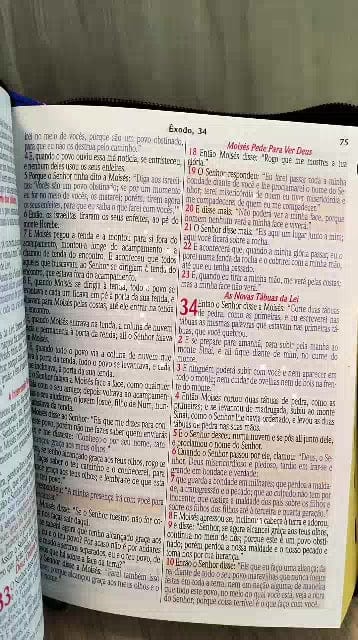 Êxodo, 34
75
irei no meio de vocês, porque são um povo obstinado,
para que eu não os destrua pelo caminho."
4 E, quando o povo ouviu essa má notícia, se entristeceu,
e nenhum deles usou os seus enfeites.
5 Porque o Senhor tinha dito a Moisés: "Diga aos israeli-
tas: 'Vocês são um povo obstinado; se por um momento
eu for no meio de vocês, os matarei; porém, tirem agora
os seus enfeites, para que eu saiba o que farei com vocês.'"
6 Então, os israelitas tiraram os seus enfeites, ao pé do
monte Horebe.
7 E Moisés pegou a tenda e a montou para si fora do
acampamento, bem longe do acampamento
chamou de tenda do encontro. E aconteceu que todo
aquele que buscava ao Senhor se dirigiam à tenda do
encontro, que estava fora do acampamento.
quando Moisés se dirigia à tenda, todo o povo se
levantava e cada um ficava em pé à porta da sua tenda, e
olhavam para Moisés pelas costas, até ele entrar na tenda
quando Moisés entrava na tenda, a coluna de nuvem
e permanecia à porta da tenda; ali o Senhor falava
quando todo o povo via a coluna de nuvem
à porta da tenda, todo o povo se levantava, e cada
inclinava, à porta da sua tenda.
Senhor falava a Moisés face a face, como qualquer
com o seu amigo; depois voltava ao acampamen-
seu ajudante, o jovem Josué, filho de Num, nun-
Moisés disse ao Senhor: "Eis que me dizes para con-
povo, porém não me fazes saber quem enviarás
disseste: 'Conheço-o por seu nome, tam-
graça aos meus olhos.'
se tenho alcançado graça aos teus olhos, rogo-te
saber o teu caminho e o conhecerei, para
graça aos teus olhos; e lembra-te de que esta
"A minha presença irá com você para
Moisés disse: "Se o Senhor mesmo não for co-
subir daqui.
que eu tenho alcançado graça aos teus
e o teu povo? Por acaso não é por andares
que sejamos separados, eu e o teu povo, de
que há sobre a face da terra?"
Senhor disse a Moisés: "Farei também isso
porque alcançou graça aos meus olhos e o
Moisés Pede Para Ver Deus
18 Então Moisés disse: "Rogo que me mostres a tua
glória."
19 O Senhor respondeu: "Eu farei passar toda a minha
bondade diante de você e lhe proclamarei o nome do Se-
nhor; terei misericórdia de quem eu tiver misericórdia, e
me compadecerei, de quem eu me compadecer."
20 E disse mais: "Não poderá ver a minha face, porque
homem nenhum verá a minha face e viverá."
21 O Senhor disse mais: "Eis aqui um lugar junto a mim;
aqui você ficará sobre a rocha.
22 E acontecerá que, quando a minha glória passar, eu o
porei numa fenda da rocha e o cobrirei com a minha mão,
até que eu tenha passado.
23 E, quando eu tirar a minha mão, me verá pelas costas;
mas a minha face não verá."
As Novas Tábuas da Lei
34 Então o Senhor disse a Moisés: "Corte duas tábuas
de pedra, como as primeiras, e eu escreverei nas
tábuas as mesmas palavras que estavam nas primeiras tá-
buas, que você quebrou.
2 E se prepare para amanhã, para subir pela manhã ao
monte Sinai, e ali fique diante de mim, no cume do
monte.
3 E ninguém poderá subir com você e nem aparecer em
todo o monte; nem cuidar de ovelhas nem de bois na fren-
te do monte."
4 Então Moisés cortou duas tábuas de pedra, como as
primeiras; e se levantou de madrugada, subiu ao monte
Sinai, como o Senhor lhe havia ordenado, e levou as duas
tábuas de pedra nas suas mãos.
5 E o Senhor desceu numa nuvem e se pôs ali junto dele;
e proclamou o nome do Senhor.
6 Quando o Senhor passou por ele, clamou: "Deus, o Se-
nhor, Deus misericordioso e piedoso, tardio em irar-se e
grande em bondade e verdade;
7 que guarda a bondade em milhares; que perdoa a malda-
de, a transgressão e o pecado; que ao culpado não tem por
inocente; que castiga a maldade dos pais sobre os filhos e
sobre os filhos dos filhos até à terceira e quarta geração."
8 E Moisés apressou-se, inclinou a cabeça à terra e adorou,
9 e disse: "Senhor, se agora alcancei graça aos teus olhos,
continua no meio de nós; porque este é um povo obsti-
nado; porém perdoa a nossa maldade e o nosso pecado e
toma-nos por tua herança."
10 Então o Senhor disse: "Eis que eu faço uma aliança; fa-
rei diante de todo o seu povo maravilhas que nunca foram
feitas em toda a terra, nem em nação alguma; de maneira
que todo este povo, no meio do qual você está, veja a obra
do Senhor; porque coisa terrível é o que faço com você.